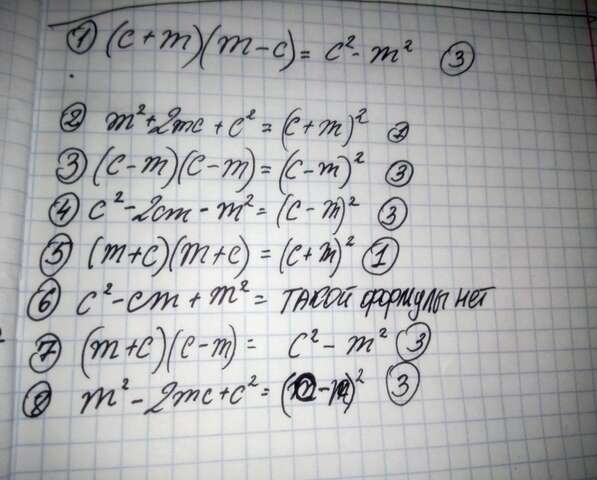 ① (c+m)(m-c) = c² - m² ③
② m² + 2mc + c² = (c+m)² ①
③ (c-m)(c-m) = (c-m)² ③
④ c² - 2cm - m² = (c-m)² ③
⑤ (m+c)(m+c) = (c+m)² ①
⑥ c² - cm + m² = ТАКОЙ формулы НЕТ
⑦ (m+c)(c-m) = c² - m² ③
⑧ m² - 2mc + c² = ( - )² ③